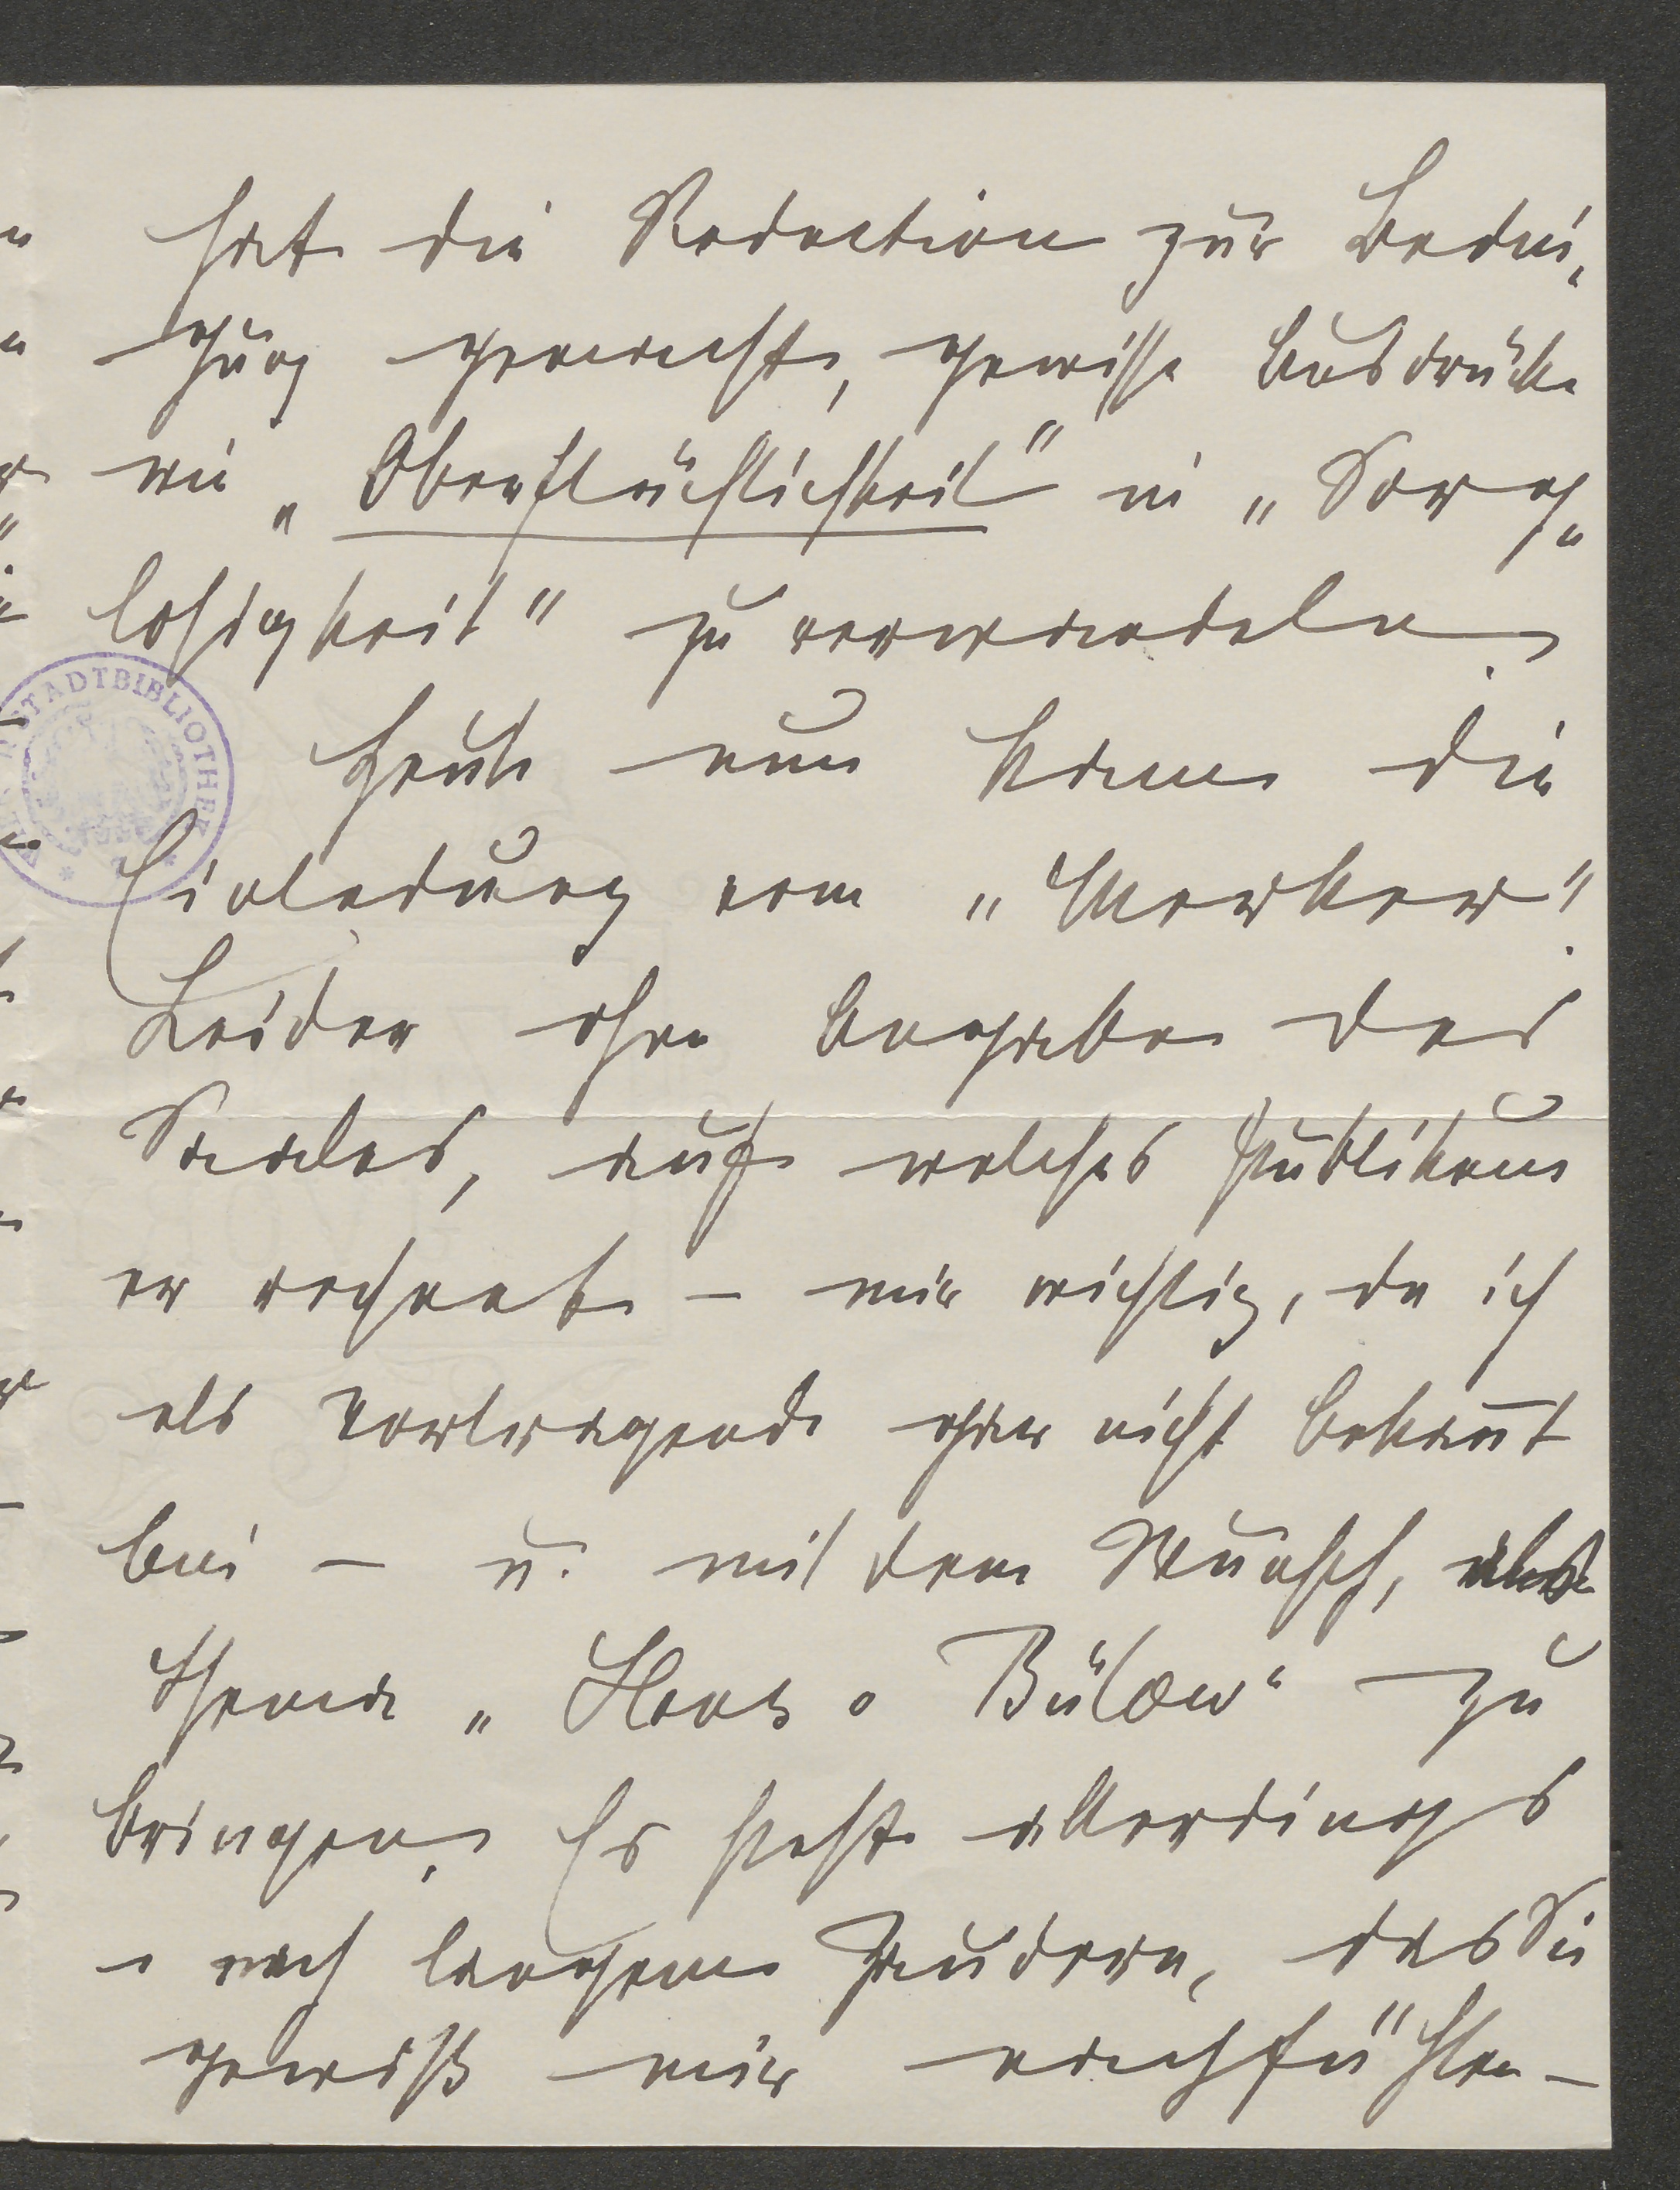 hat die Redaction zur Bedin-
gung gemacht, gewisse Ausdrücke
wie „Oberflächlichkeit" in „Sorg-
losigkeit" zu verwandeln.
Heute nun kam die
Einladung vom „Merker".
Leider ohne Angabe des
Saales, auf welches Publikum
er rechnet – mir wichtig, da ich
als Vortragende gar nicht bekannt
bin – u. mit dem Wunsch, als
Thema „Hans v Bülow" zu
bringen. Es steht allerdings
nach langem Zaudern, das Sie
gewiß mir nachfühlen –
STADTBIBLIOTHEK